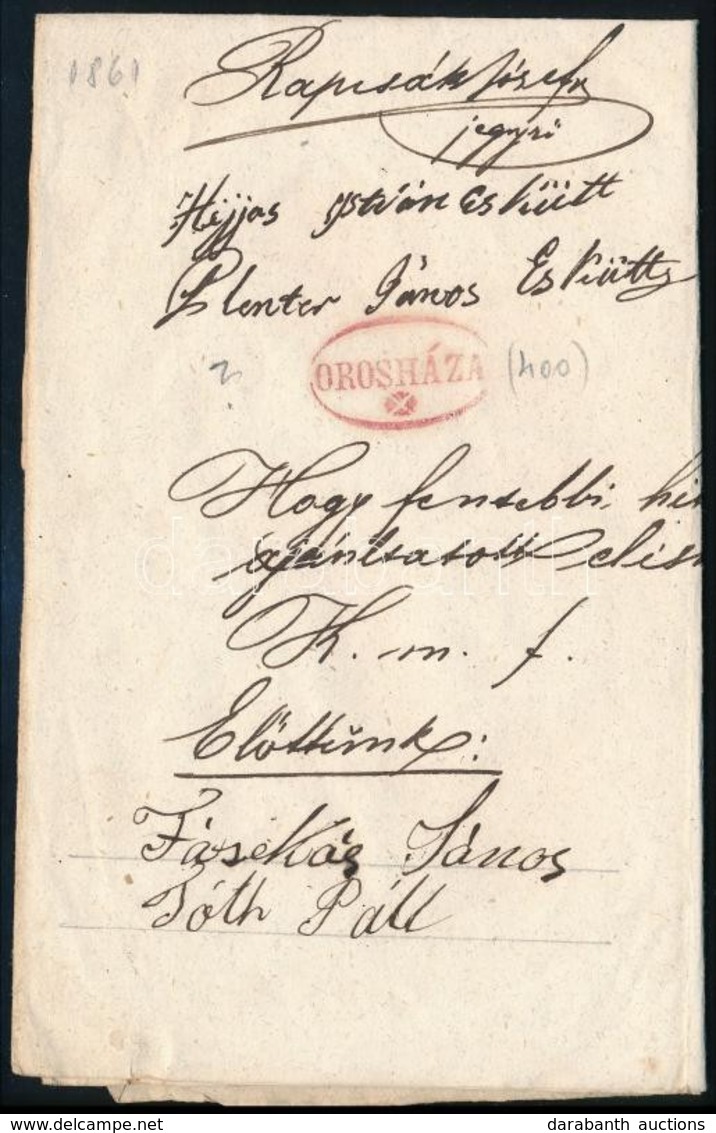 1861
Rapcsák József
jegyző
Héjjas István Eskütt
Plenter János Eskütt
OROSHÁZA (400)
Hogy fentebbi
ajánltatott
K. m. f.
Előttünk:
Fazekas János
Tóth Páll
darabanth
delcampe.net
darabanth auctions